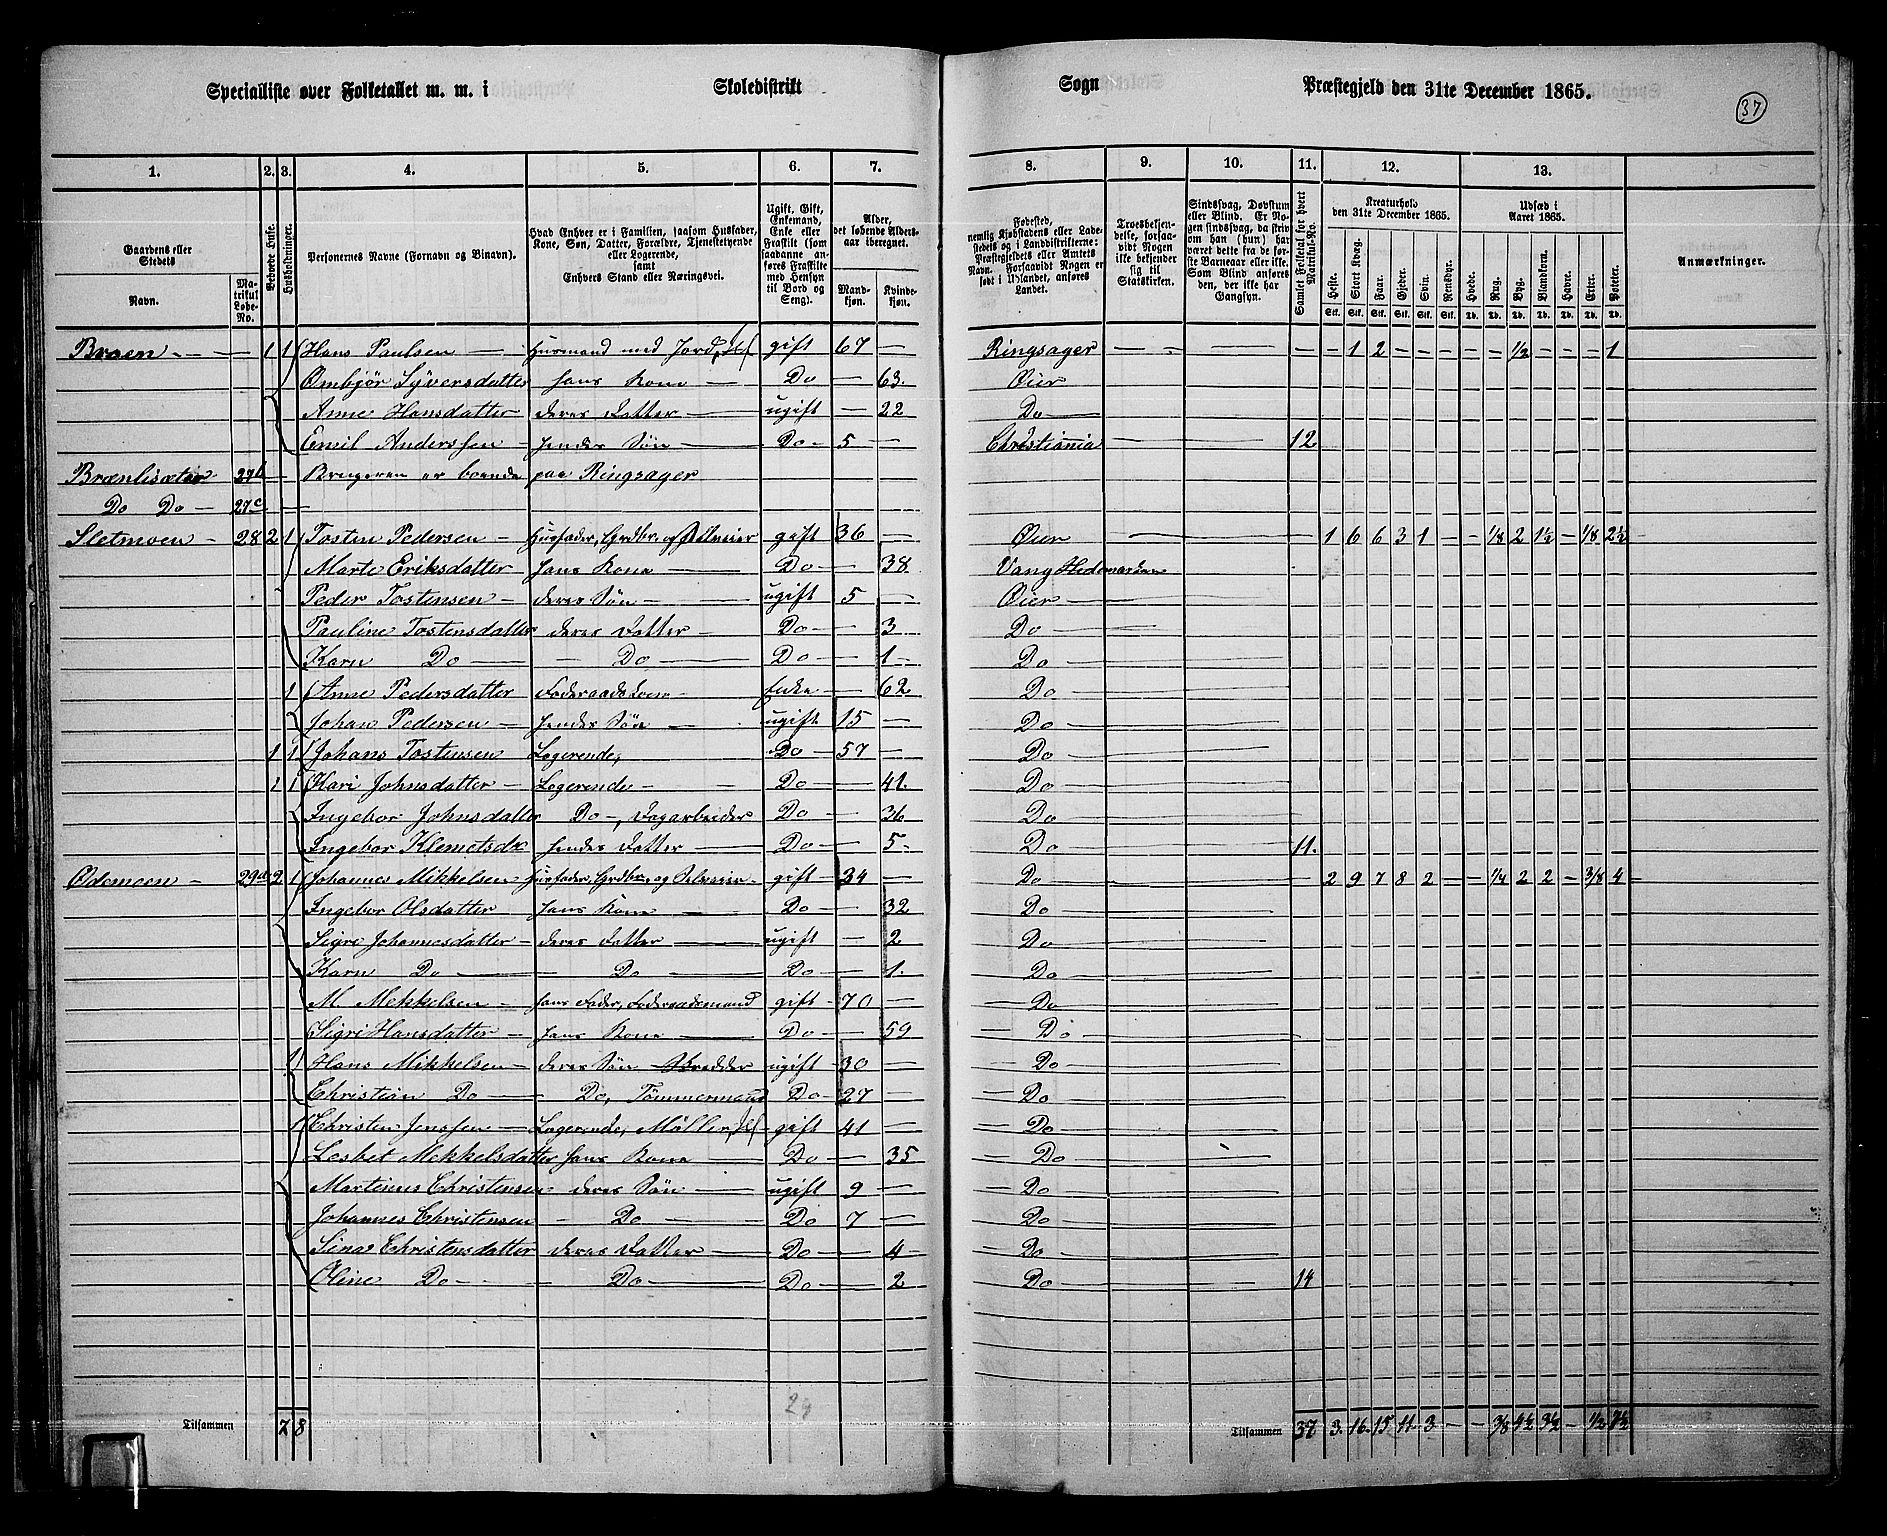 Specialliste over Folketallet m. m. i Skoledistrikt Sogn Præstegjeld den 31te December 1865.
37
1. 2. 3. 4. 5. 6. 7. 8. 9. 10. 11. 12. 13.
Gaardens eller Stedets
Navn.
Matrikul Løbe-No.
Beboede Huse.
Husholdninger.
Personernes Navne (Fornavn og Binavn).
Hvad Enhver er i Familien, saasom Husfader, Kone, Søn, Datter, Forældre, Tjenestetyende eller Logerende, samt Enhvers Stand eller Næringsvei.
Ugift, Gift, Enkemand, Enke eller Fraskilt (som saadanne anføres Fraskilte med Hensyn til Bord og Seng).
Alder, det løbende Alders-aar iberegnet.
Mandkjøn. Kvindekjøn.
Fødested, nemlig Kjøbstadens eller Ladestedets og i Landdistrikterne: Præstegjeldets eller Amtets Navn. Forsaavidt Nogen er født i Udlandet, anføres Landet.
Troesbekjendelse, forsaavidt Nogen ikke bekjender sig til Statskirken.
Sindssvag, Døvstum eller Blind. Er Nogen sindssvag, da skrives om han (hun) har været dette fra de første Barneaar eller ikke. Som Blind anføres den, der ikke har Gangsyn.
Samlet Folketal for hvert Matrikul-No.
Kreaturhold den 31te December 1865.
Heste. Stort Kvæg. Faar. Gjeder. Svin. Rensdyr.
Stk. Stk. Stk. Stk. Stk. Stk.
Udsæd i Aaret 1865.
Hvede. Rug. Byg. Blandkorn. Havre. Erter. Poteter.
Td. Td. Td. Td. Td. Td. Td.
Anmærkninger.
Braen 1 1 Hans Paulsen Husmand med Jord, gift 67 Ringsager 1 2 ½ 1
Ombjör Syversdatter hans Kone Do 63. Öier
Anne Hansdatter deres Datter ugift 22 Do
Emil Anderssen hendes Sön Do 5 Christiania 12
Brænlisæter 27b Brugeren er boende paa Ringsager
Do Do 27c
Sletmoen 28 2 1 Tosten Pedersen Husfader, Grdbr. og Selveier gift 36 Öier 1 6 6 3 1 ⅛ 2 1½ ⅛ 2½
Marte Eriksdatter hans Kone Do 38. Vang Hedemarken
Peder Tostensen deres Sön ugift 5 Öier
Pauline Tostensdatter deres Datter Do 3 Do
Karn Do Do Do 1 Do
1 Anne Pedersdatter Föderaadskone Enke 62 Do
Johan Pedersen hendes Sön ugift 15 Do
1 1 Johans Tostensen Logerende, Do 57 Do
1 1 Kari Johnsdatter Logerende Do 41. Do
Ingebor Johnsdatter Do, Dagarbeider Do 36 Do
Ingebor Klemetsdr hendes Datter Do 5 Do 11.
Ödemoen 29a 2 1 Johannes Mikkelsen Husfader, Grdbr. og Selveier gift 34 Do 2 9 7 8 2 ¼ 2 2 3/8 4
Ingebor Olsdatter hans Kone Do 32 Do
Sigri Johannesdatter deres Datter ugift 2 Do
Karn Do Do Do 1. Do
M. Mekkelsen hans Fader, Föderaadsmand gift 70 Do
Sigri Hansdatter hans Kone Do 59 Do
1 Hans Mikkelsen deres Sön Skredder ugift 30 Do
Christian Do Do, Tömmermand Do 27 Do
1 Christen Jenssen Logerende, Möller, gift 41 Do
Lesbet Mekkelsdatter hans Kone Do 35 Do
Martinus Christensen deres Sön ugift 9 Do
Johannes Christensen Do Do 7 Do
Sina Christensdatter deres Datter Do 4 Do
Oline Do Do Do 2 Do 14
Tilsammen 7 8 Tilsammen 37 3. 16. 15. 11. 3 3/8 4½ 3½ ½ 7½